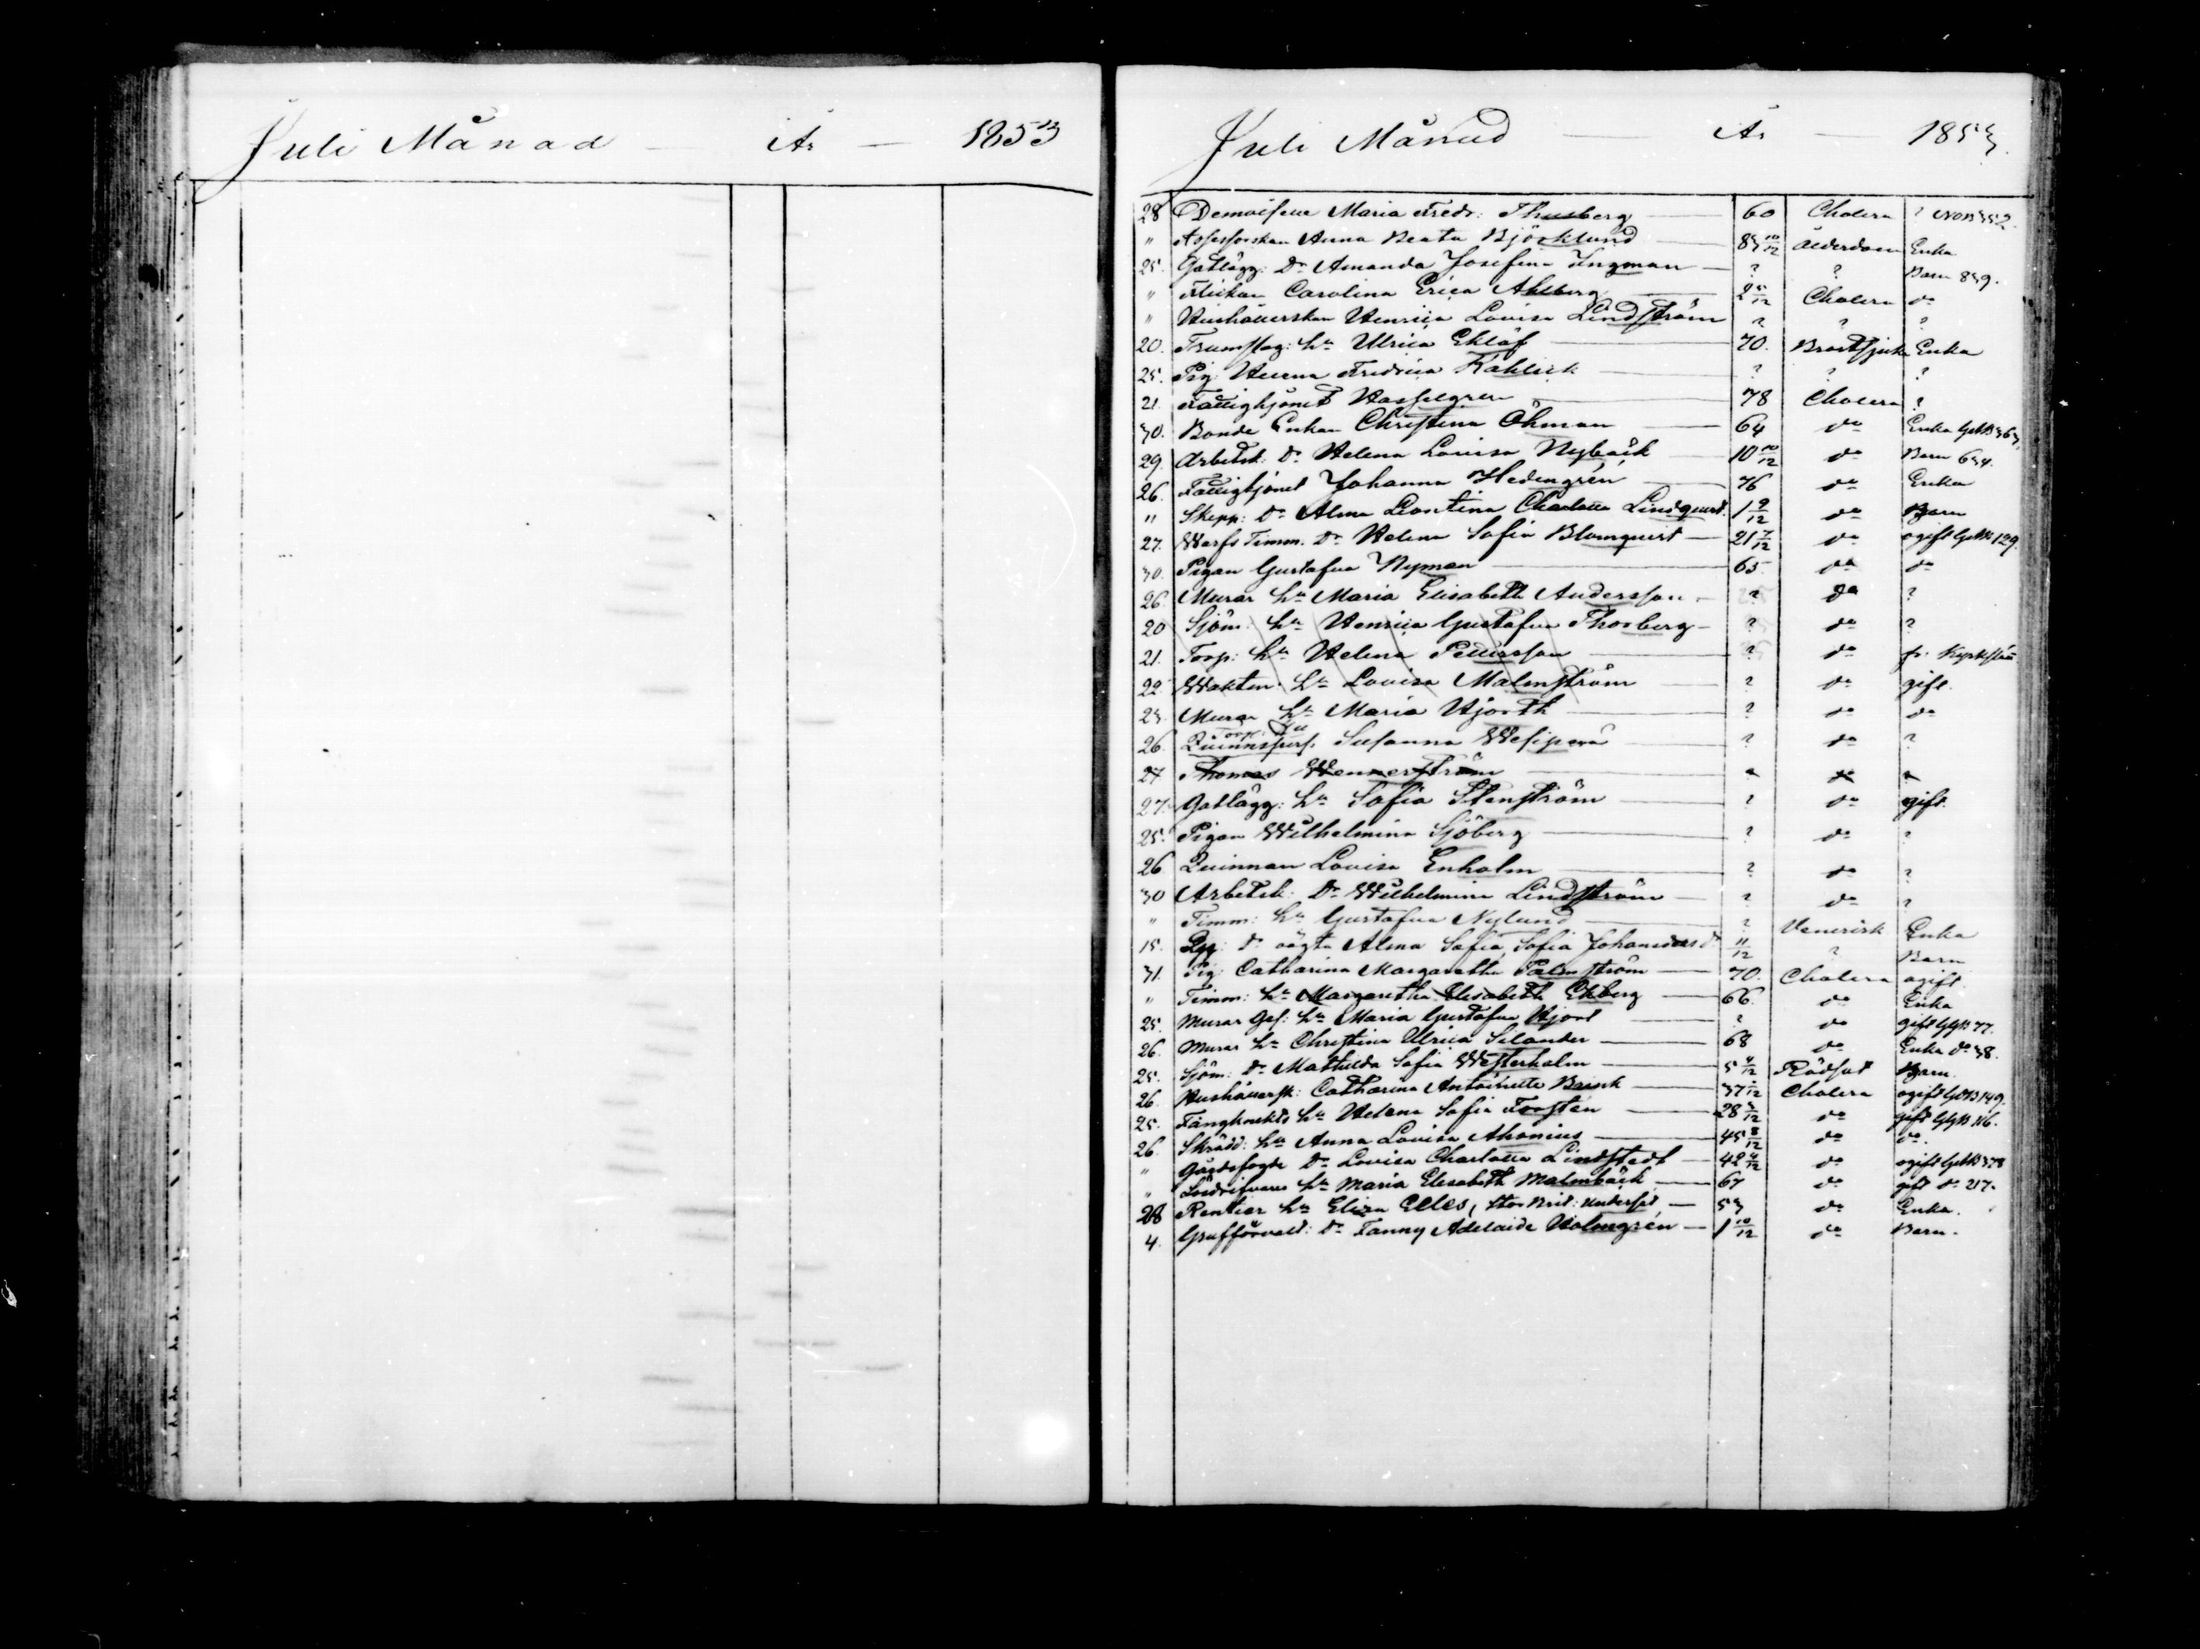 Juli Månad År 1853
Juli Månad År 1853.
28 Demoiselle Maria Fredr: Thusberg 60 Cholera ?
" Assessorskan Anna Beata Björklund 83 10/12 Ålderdom Enka
25. Gatlägg: Dr Amanda Josefina Ingman ? ? Barn 859.
" Flickan Carolina Erica Ahlberg 2 5/12 Cholera do
" Hushållerskan Henrica Lovisa Lindström ? ? ?
20. Trumslag: hu Ulrica Eklöf 70. Bröstsjuka Enka
25. Pig: Helena Fredrica Kahlick ? ? ?
21. Fattighjonet Hasselgren 78 Cholera ?
30. Bonde Enkan Christina Öhman 64 do Enka
29. Arbetsk: Dr Helena Lovisa Nybäck 10 10/12 do Barn 634.
26. Fattighjonet Johanna Hedengrén 76 do Enka
" Skepp: Dr Alma Leontina Charlotta Lindqvist. 1 9/12 do Barn
27. Warfs Timm. Dr Helena Sofia Blomquist 21 7/12 do ogift 129.
30. Pigan Gustafva Nyman 65 do do
26. Murar hu Maria Elisabeth Andersson ? do ?
20 Sjöm: hu Henrica Gustafva Thorberg ? do ?
21. Torp: hu Helena Pettersson ? do fr: Kyrkslätt
22. Waktm: hu Lovisa Malmström ? do gift.
23. Murar hu Maria Hjorth ? do do
26. Torp: hu Quinnspers. Susanna ? do ?
27 Thomas Wennerström
27. Gatlägg: hu Sofia Stenström ? do gift.
25. Pigan Wilhelmina Sjöberg ? do ?
26 Quinnan Lovisa Enholm ? do ?
30 Arbetsk: Dr Wilhelmina Lindström ? do ?
" Timm: hu Gustafva Nylund ? Venerisk Enka
15. Pig: Dr oägta Alma Sofia, Sofia Johansdr 11/12 ? Barn
31. Pig: Catharina Margaretha Palmström 70. Cholera ogift
" Timm: hu Margaretha Elisabeth Ekberg 66. do Enka
25. Murar Ges: hu Maria Gustafva Hjort ? do gift 77.
26. Murar hu Christina Ulrica Selander 68 do Enka do 38.
25. Sjöm: Dr Mathilda Sofia Westerholm 5 4/12 Rödsot Barn.
26. Hushållersk: Catharina Antoinette Brink Cholera ogift 149.
25. Fångknekts hu Helena Sofia Forstén do gift 116.
26. Skrädd: hu Anna Lovisa Ahonius 45 8/12 do do.
" Gårdsfogde Dr Lovisa Charlotta Lindstedt 42 4/12 do ogift
" hu Maria Elisabeth Malmbäck 67 do gift do 217.
28 Rentier hu Eliza Elles, Stor Brit: Undersåt 53 do Enka.
4. Grufförvalt: Dr Fanny Adelaide Holmgrén 1 10/12 do Barn.